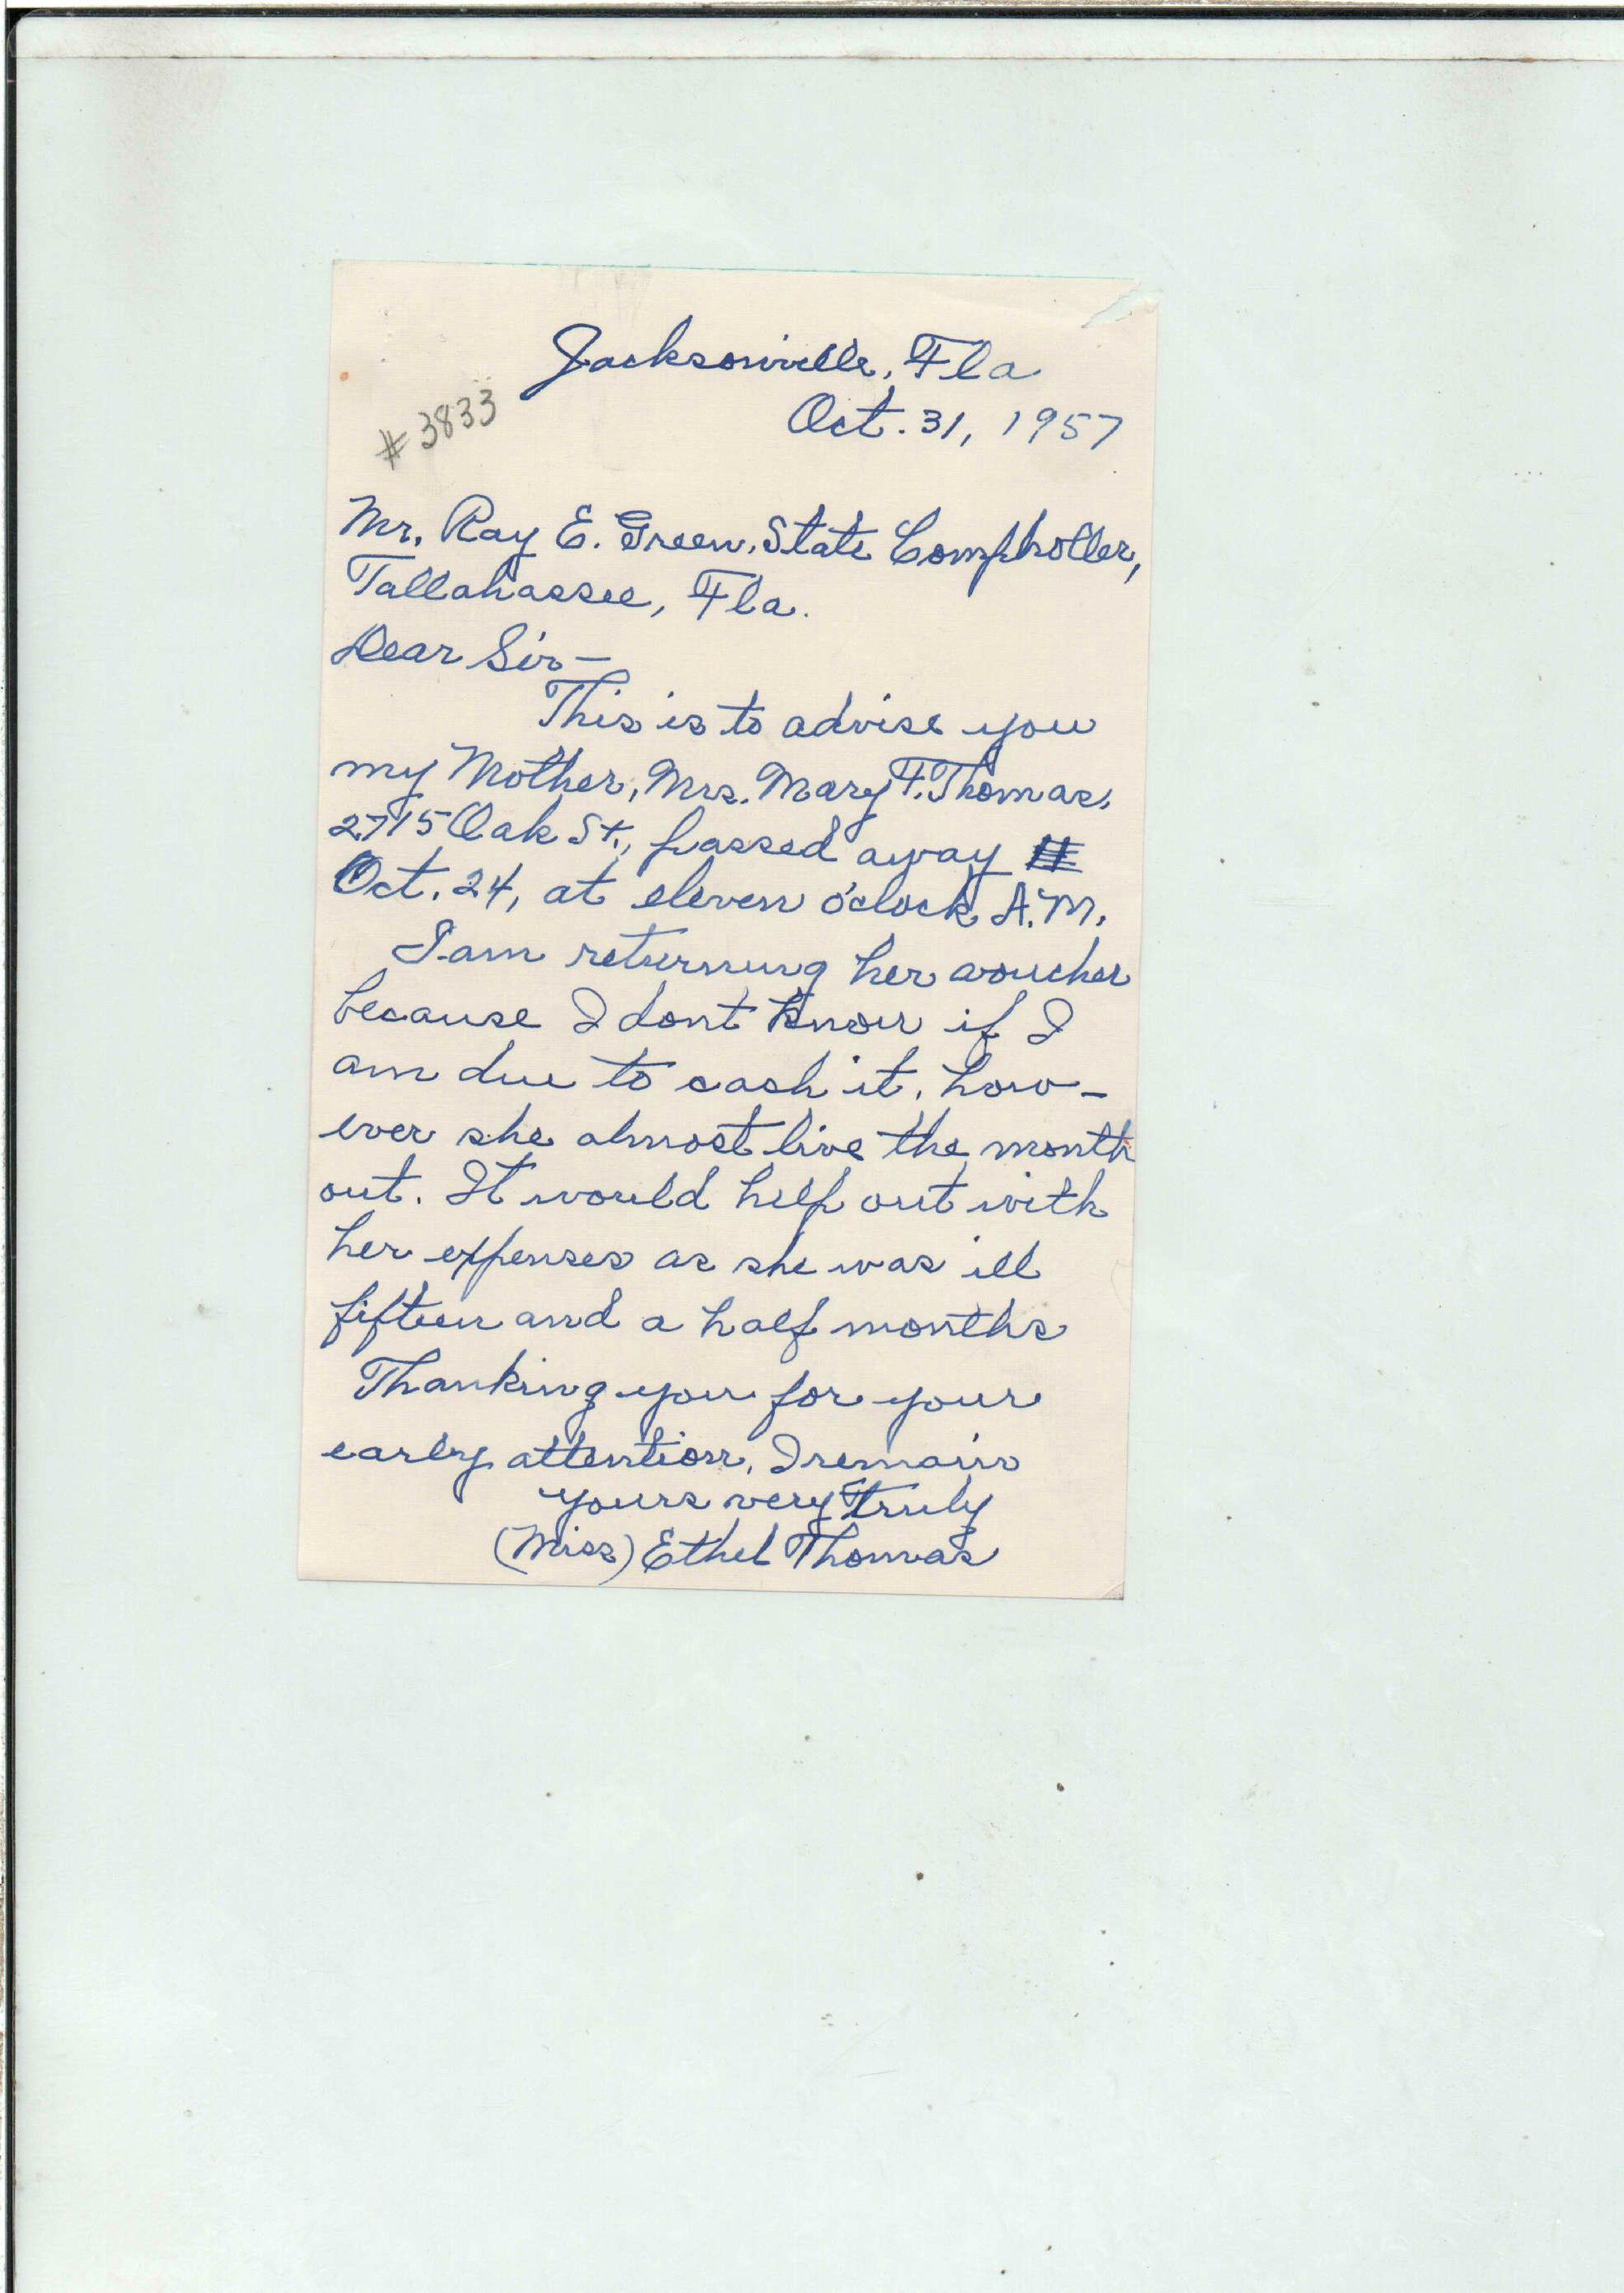 Jacksonville, Fla
Oct. 31, 1957
# 3833
Mr. Ray E. Green, State Comptroller,
Tallahassee, Fla.
Dear Sir—
This is to advise you
my Mother, Mrs. Mary F. Thomas,
2715 Oak St., passed away
Oct. 24, at eleven o'clock A.M.
I am returning her voucher
because I dont know if I
am due to cash it, how-
ever she almost live the month
out. It would help out with
her expenses as she was ill
fifteen and a half months
Thanking you for your
early attention, I remain
yours very truly
(Miss) Ethel Thomas